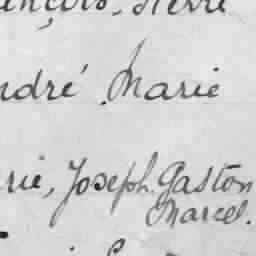 ençois, Pierre
ndré, Marie
rie, Joseph Gaston
Marcel.